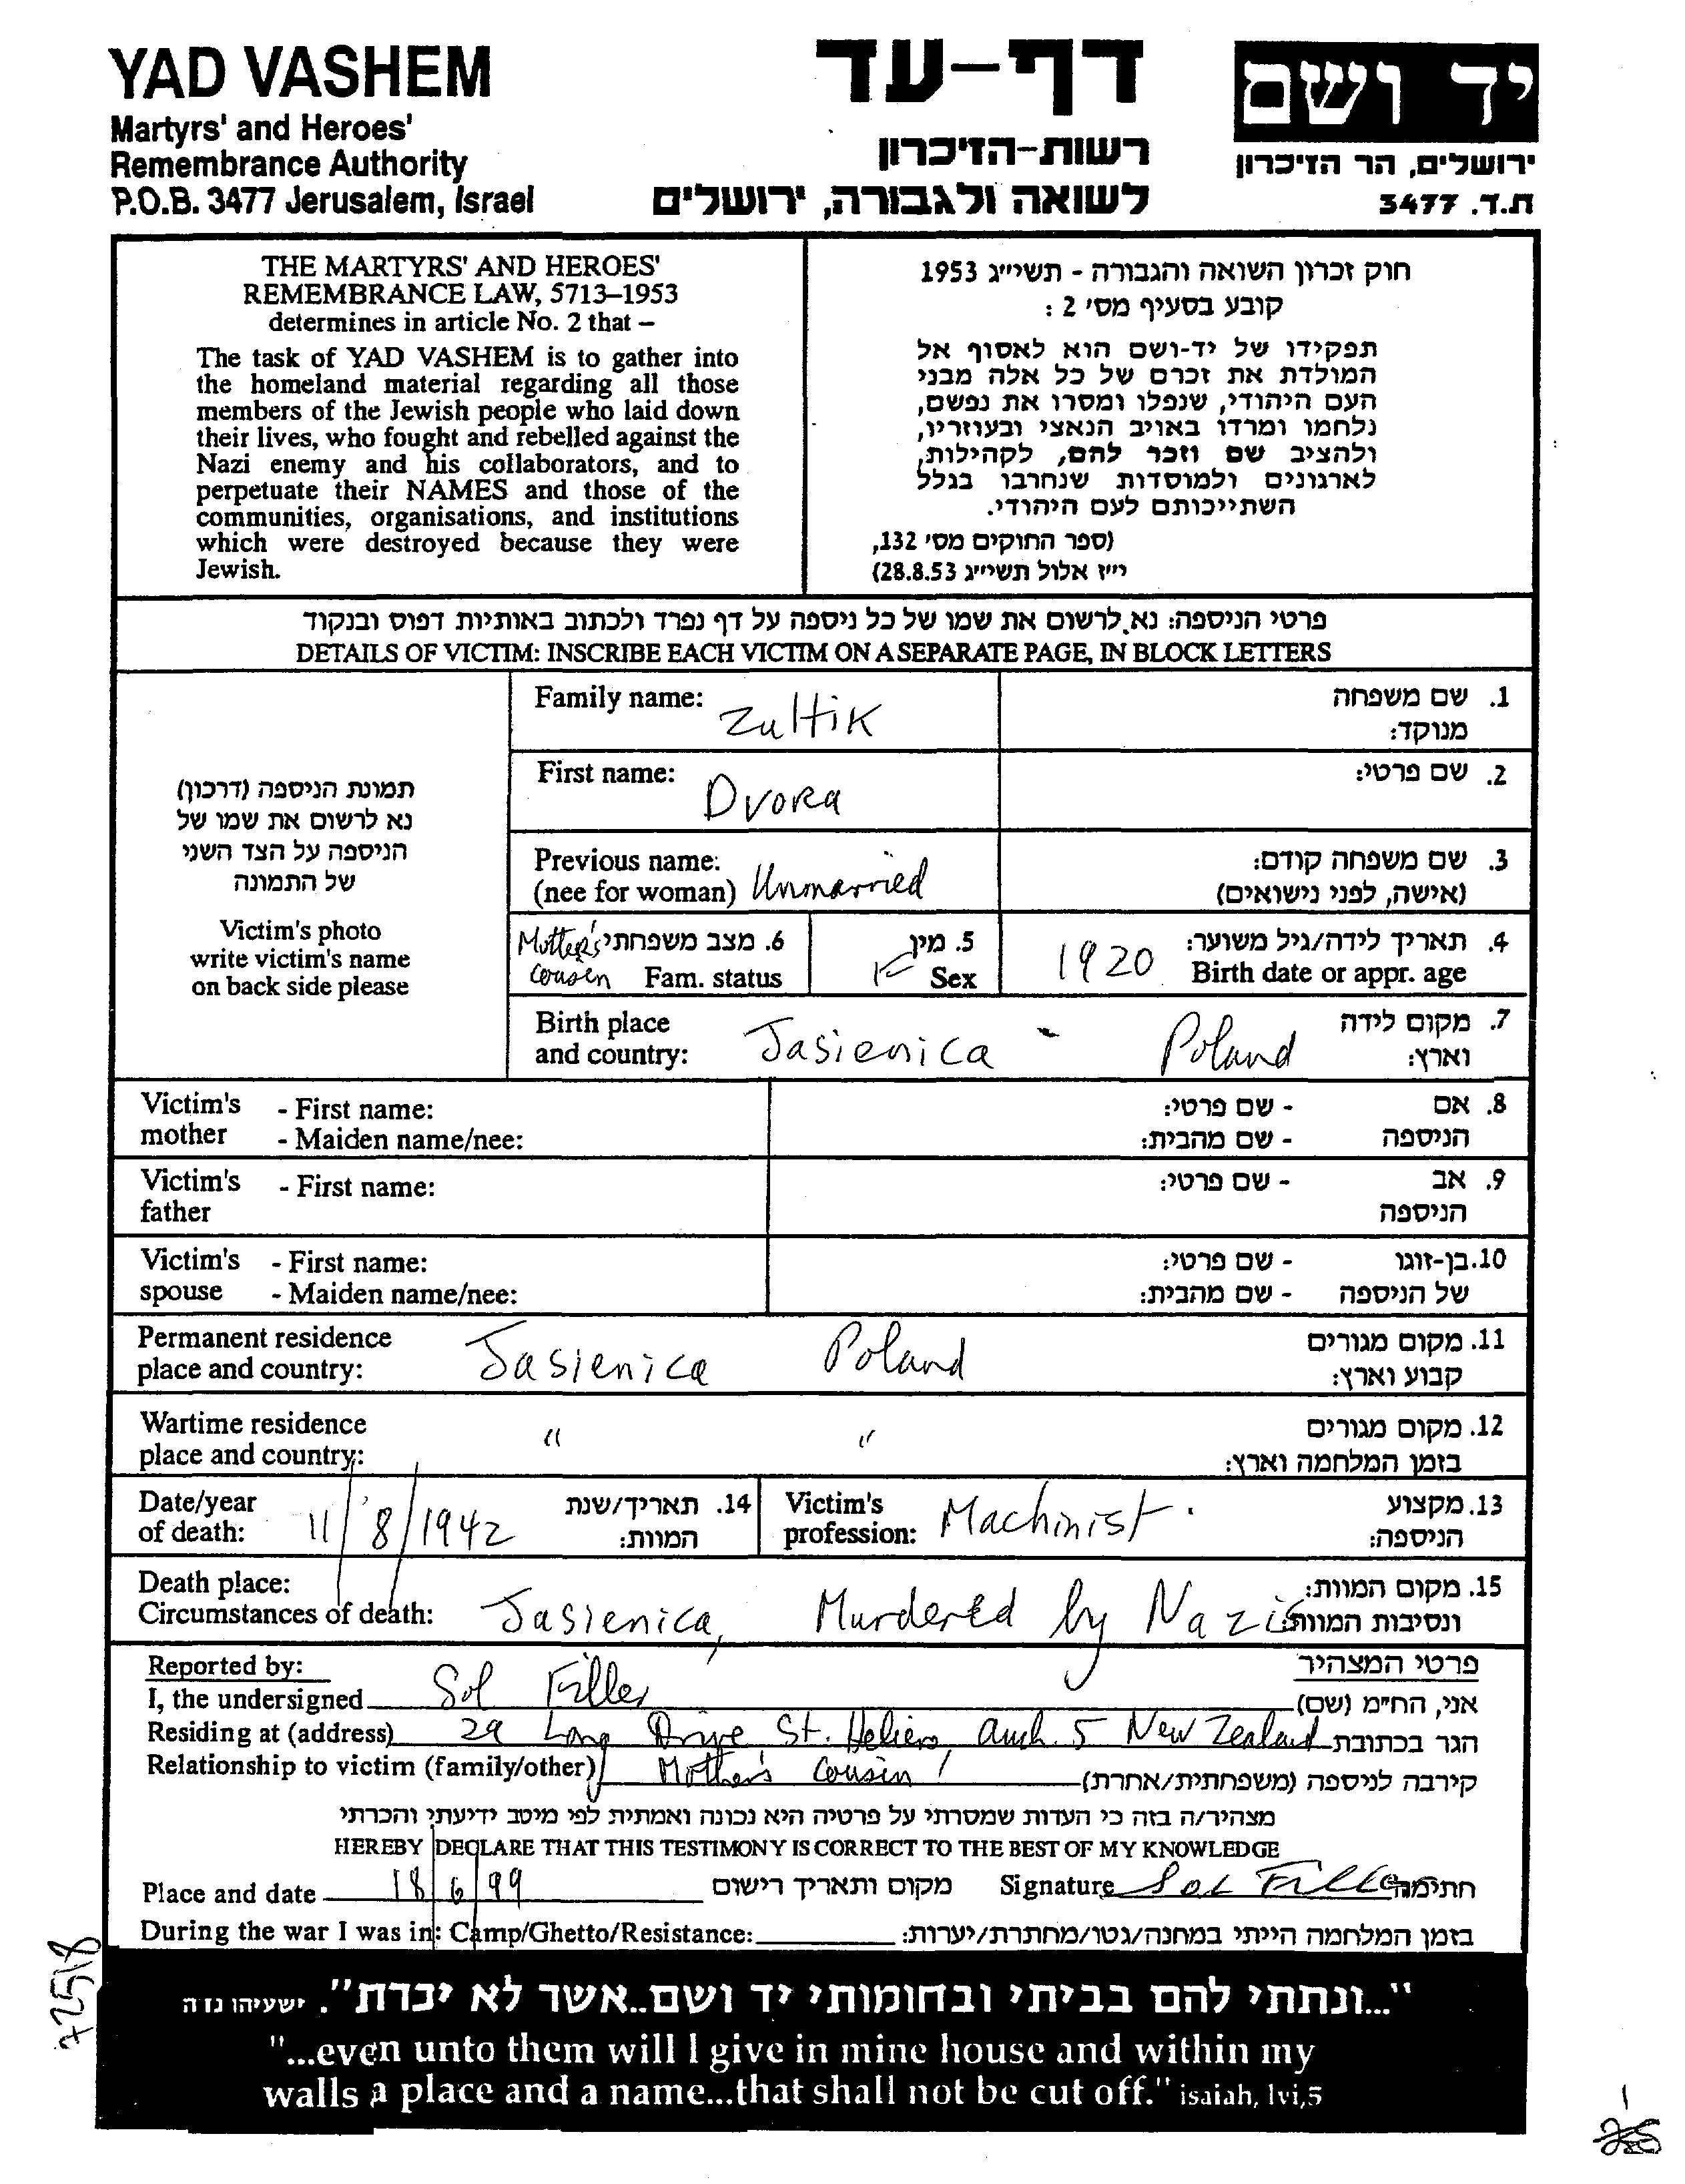 YAD VASHEM
Martyrs' and Heroes'
Remembrance Authority
P.O.B. 3477 Jerusalem, Israel
דף-עד
רשות-הזיכרון
לשואה ולגבורה, ירושלים
יד ושם
ירושלים, הר הזיכרון
ת.ד. 3477
THE MARTYRS' AND HEROES'
REMEMBRANCE LAW, 5713–1953
determines in article No. 2 that –
The task of YAD VASHEM is to gather into
the homeland material regarding all those
members of the Jewish people who laid down
their lives, who fought and rebelled against the
Nazi enemy and his collaborators, and to
perpetuate their NAMES and those of the
communities, organisations, and institutions
which were destroyed because they were
Jewish.
חוק זכרון השואה והגבורה - תשי״ג 1953
קובע בסעיף מס׳ 2 :
תפקידו של יד-ושם הוא לאסוף אל
המולדת את זכרם של כל אלה מבני
העם היהודי, שנפלו ומסרו את נפשם,
נלחמו ומרדו באויב הנאצי ובעוזריו,
ולהציב שם וזכר להם, לקהילות,
לארגונים ולמוסדות שנחרבו בגלל
השתייכותם לעם היהודי.
(ספר החוקים מס׳ 132,
י״ז אלול תשי״ג 28.8.53)
פרטי הניספה: נא לרשום את שמו של כל ניספה על דף נפרד ולכתוב באותיות דפוס ובנקוד
DETAILS OF VICTIM: INSCRIBE EACH VICTIM ON A SEPARATE PAGE, IN BLOCK LETTERS
תמונת הניספה (דרכון)
נא לרשום את שמו של
הניספה על הצד השני
של התמונה
Victim's photo
write victim's name
on back side please
Family name: Zultik 1. שם משפחה
מנוקד:
First name: Dvora 2. שם פרטי:
Previous name: 3. שם משפחה קודם:
(nee for woman) Unmarried (אישה, לפני נישואים)
Mother's 6. מצב משפחתי 5. מין 4. תאריך לידה/גיל משוער:
Cousin Fam. status F Sex 1920 Birth date or appr. age
Birth place 7. מקום לידה
and country: Jasienica - Poland וארץ:
Victim's - First name: - שם פרטי: 8. אם
mother - Maiden name/nee: - שם מהבית: הניספה
Victim's - First name: - שם פרטי: 9. אב
father הניספה
Victim's - First name: - שם פרטי: 10. בן-זוגו
spouse - Maiden name/nee: - שם מהבית: של הניספה
Permanent residence 11. מקום מגורים
place and country: Jasienica Poland קבוע וארץ:
Wartime residence 12. מקום מגורים
place and country: " " בזמן המלחמה וארץ:
Date/year 14. תאריך/שנת Victim's 13. מקצוע
of death: 11/8/1942 המוות: profession: Machinist הניספה:
Death place: 15. מקום המוות:
Circumstances of death: Jasienica, Murdered by Nazis ונסיבות המוות:
Reported by: פרטי המצהיר
I, the undersigned Sol Filler אני, הח״מ (שם)
Residing at (address) 29 Long Drive St. Heliers, Auch. 5 New Zealand הגר בכתובת
Relationship to victim (family/other) Mother's Cousin קירבה לניספה (משפחתית/אחרת)
מצהיר/ה בזה כי העדות שמסרתי על פרטיה היא נכונה ואמתית לפי מיטב ידיעתי והכרתי
HEREBY DECLARE THAT THIS TESTIMONY IS CORRECT TO THE BEST OF MY KNOWLEDGE
Place and date 18/6/99 מקום ותאריך רישום Signature Sol Filler חתימה
During the war I was in: Camp/Ghetto/Resistance: בזמן המלחמה הייתי במחנה/גטו/מחתרת/יערות:
"...ונתתי להם בביתי ובחומותי יד ושם..אשר לא יכרת". ישעיהו נו ה
"...even unto them will I give in mine house and within my
walls a place and a name...that shall not be cut off." isaiah, lvi,5